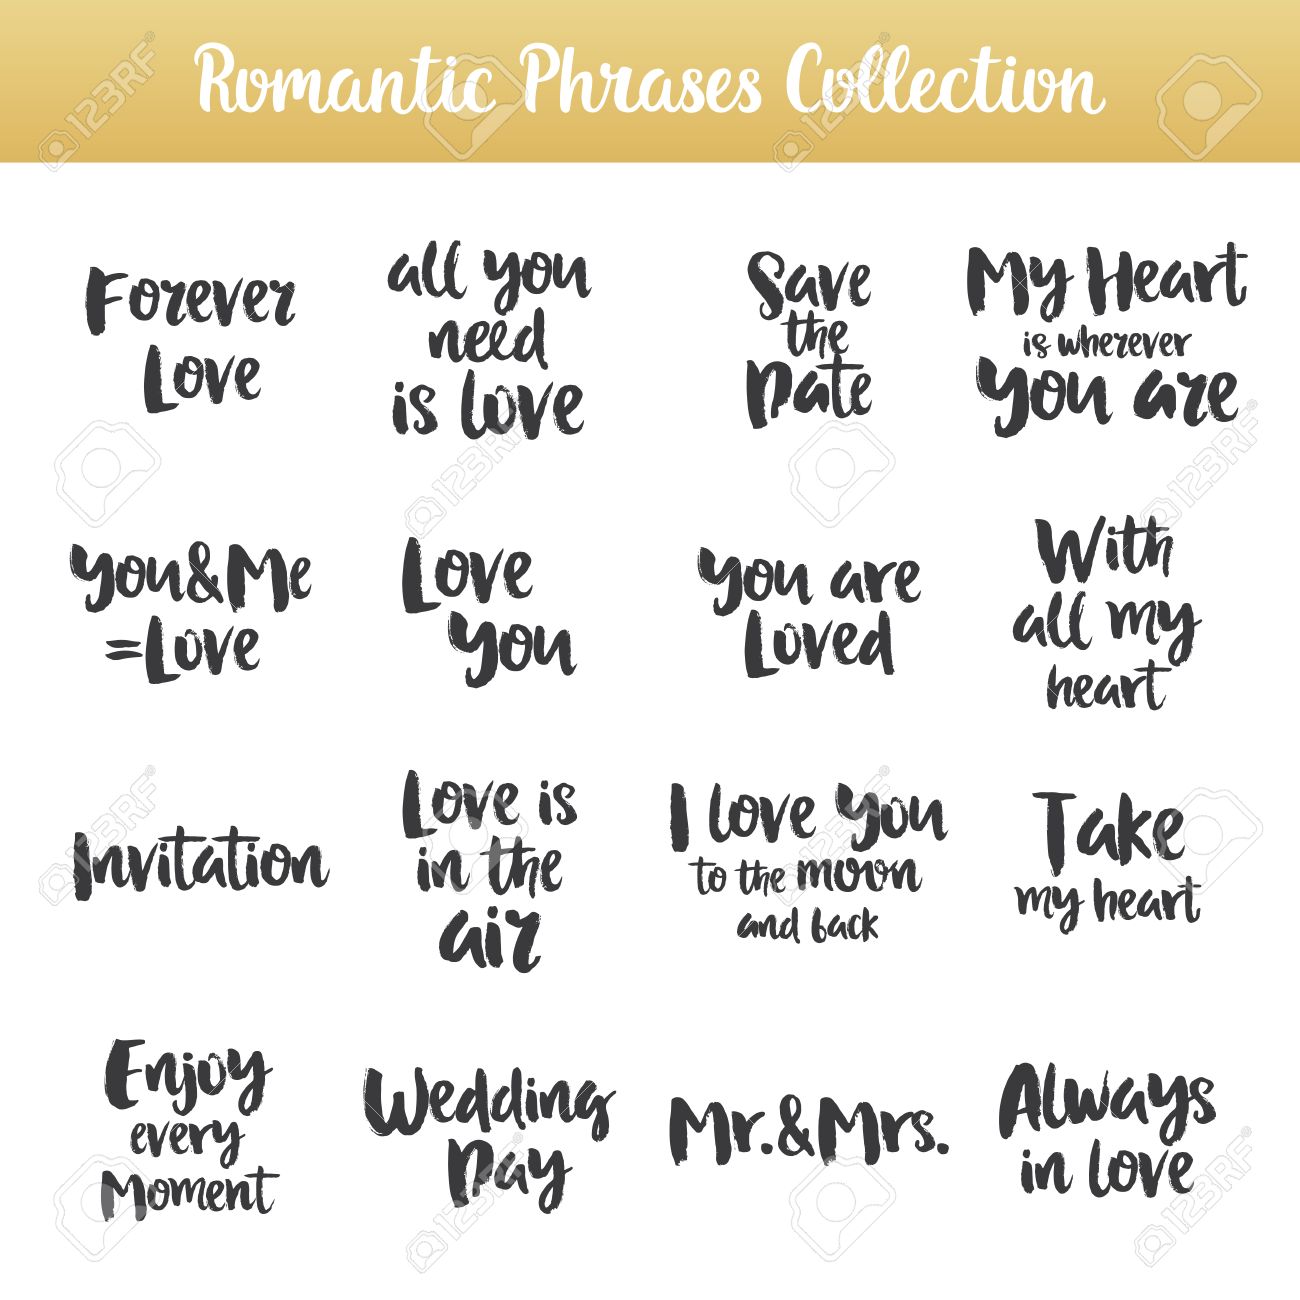 Romantic Phrases Collection
Forever
Love
all you
need
is love
Save
the
Date
My Heart
is wherever
you are
You&Me
=Love
Love
You
You are
Loved
With
all my
heart
Invitation
Love is
in the
air
I love you
to the moon
and back
Take
my heart
Enjoy
every
Moment
Wedding
Day
Mr.&Mrs.
Always
in love
123RF